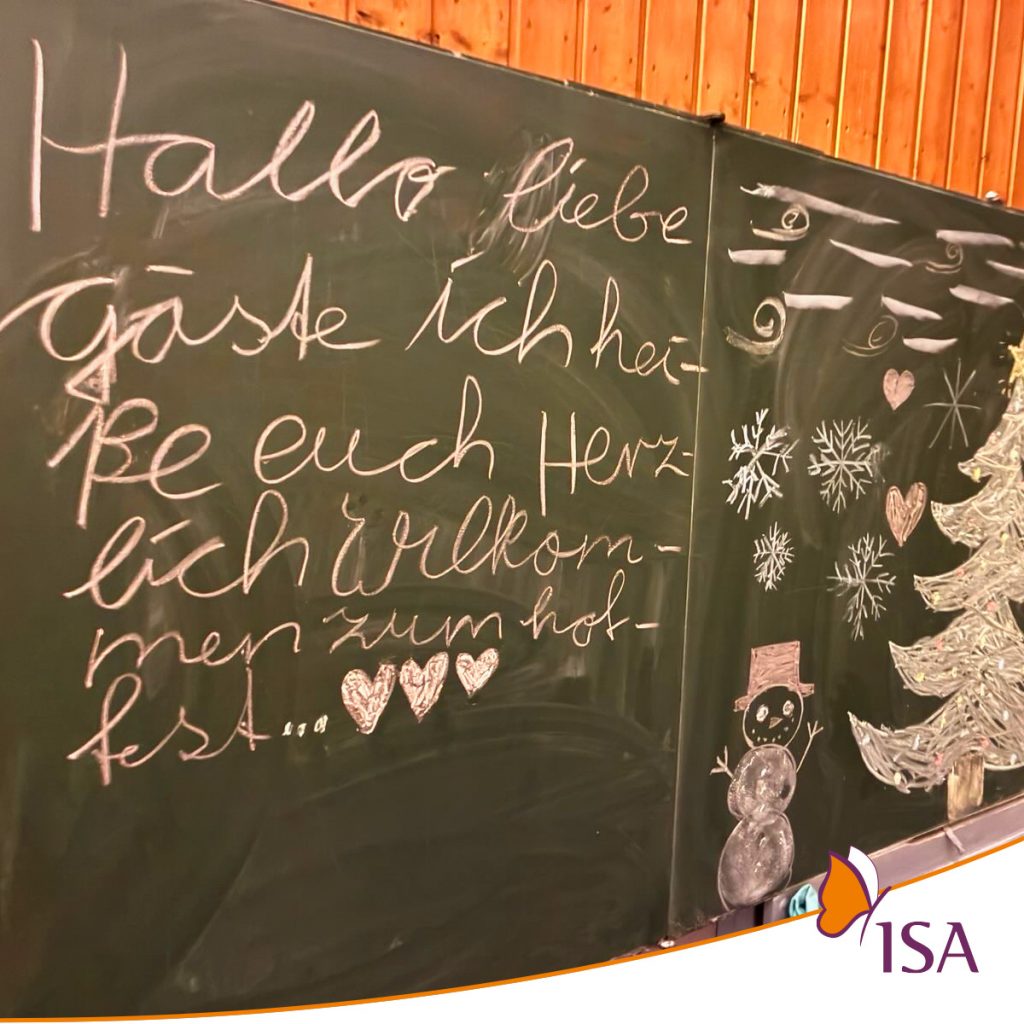 Hallo liebe
gäste ich hei-
ße euch Herz-
lich Wilkom-
men zum hof-
fest...
ISA